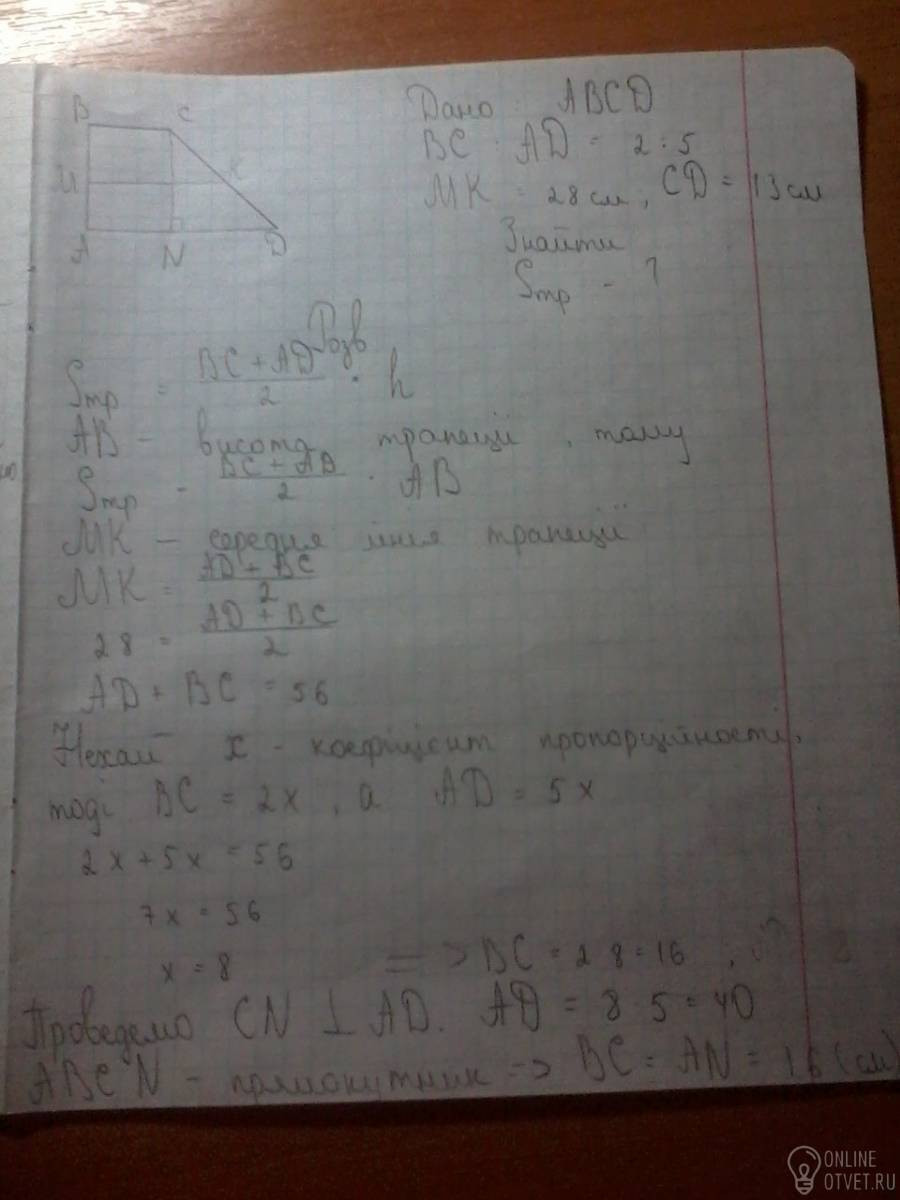 B C
M K
A N D
Дано: ABCD
BC : AD = 2 : 5
MK = 28 см, CD = 13 см
Знайти
Sтр - ?
Розв
Sтр = BC + AD / 2 · h
AB - висота трапеції, тому
Sтр = BC + AD / 2 · AB
MK - середня лінія трапеції
MK = AD + BC / 2
28 = AD + BC / 2
AD + BC = 56
Нехай x - коефіцієнт пропорційності,
тоді BC = 2x, а AD = 5x
2x + 5x = 56
7x = 56
x = 8 => BC = 2 · 8 = 16,
Проведемо CN ⊥ AD. AD = 8 · 5 = 40
ABCN - прямокутник => BC = AN = 16 (см)
ONLINE
OTVET.RU